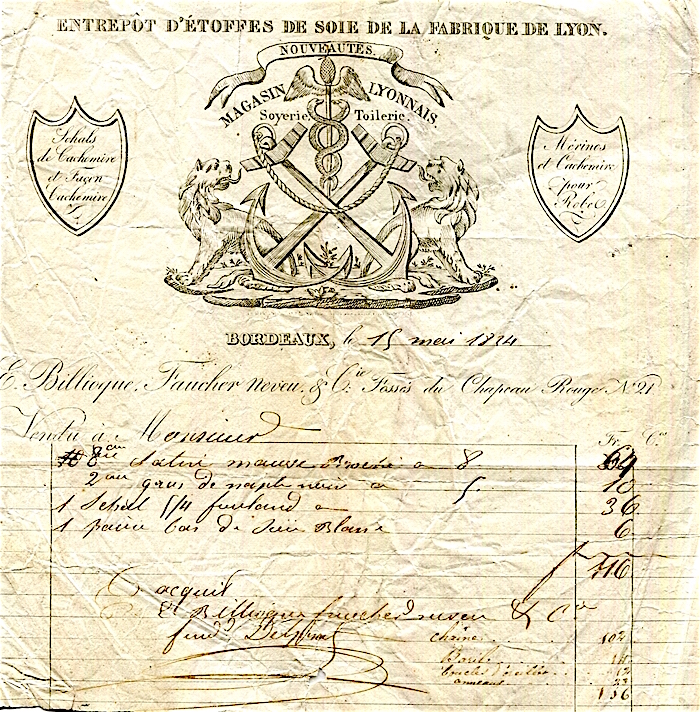 ENTREPÔT D'ÉTOFFES DE SOIE DE LA FABRIQUE DE LYON.
NOUVEAUTES.
MAGASIN LYONNAIS.
Soyerie. Toilerie.
Schals
de Cachemire
et Façon
Cachemire
Mérinos
et Cachemire
pour
Robe
BORDEAUX, le 15 mai 1824
E. Billioque, Faucher neveu, & Cie. Fossés du Chapeau Rouge No. 21
Vendu à Monsieur
Fr. Cs
8 Satin mauve Broché a 8 64
2 gros de naple noir a 5 10
1 Schal 5/4 a 36
1 paire bas de Soie Blanc 6
116
acquit
E Billioque faucher neveu & Cie
chaine 102
Boucles
anneaux
156